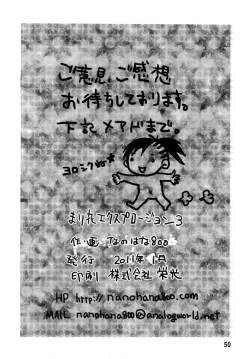 ご意見、ご感想
お待ちしております。
下記メアドまで。
ヨロシクね☆
まり花エクスプロージョン3
作・画 なのはな800
発行 2011年1月
印刷 株式会社 栄光
HP http://nanohana800.com
MAIL nanohana800@analogworld.net
50